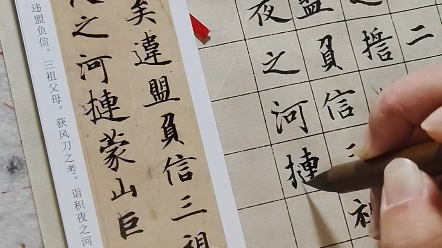 二
之誓
盟負信三祖
夜之河摙
矣違盟負信三祖
之河摙蒙山巨
违盟负信。三祖父母。获风刀之考。诣积夜之河